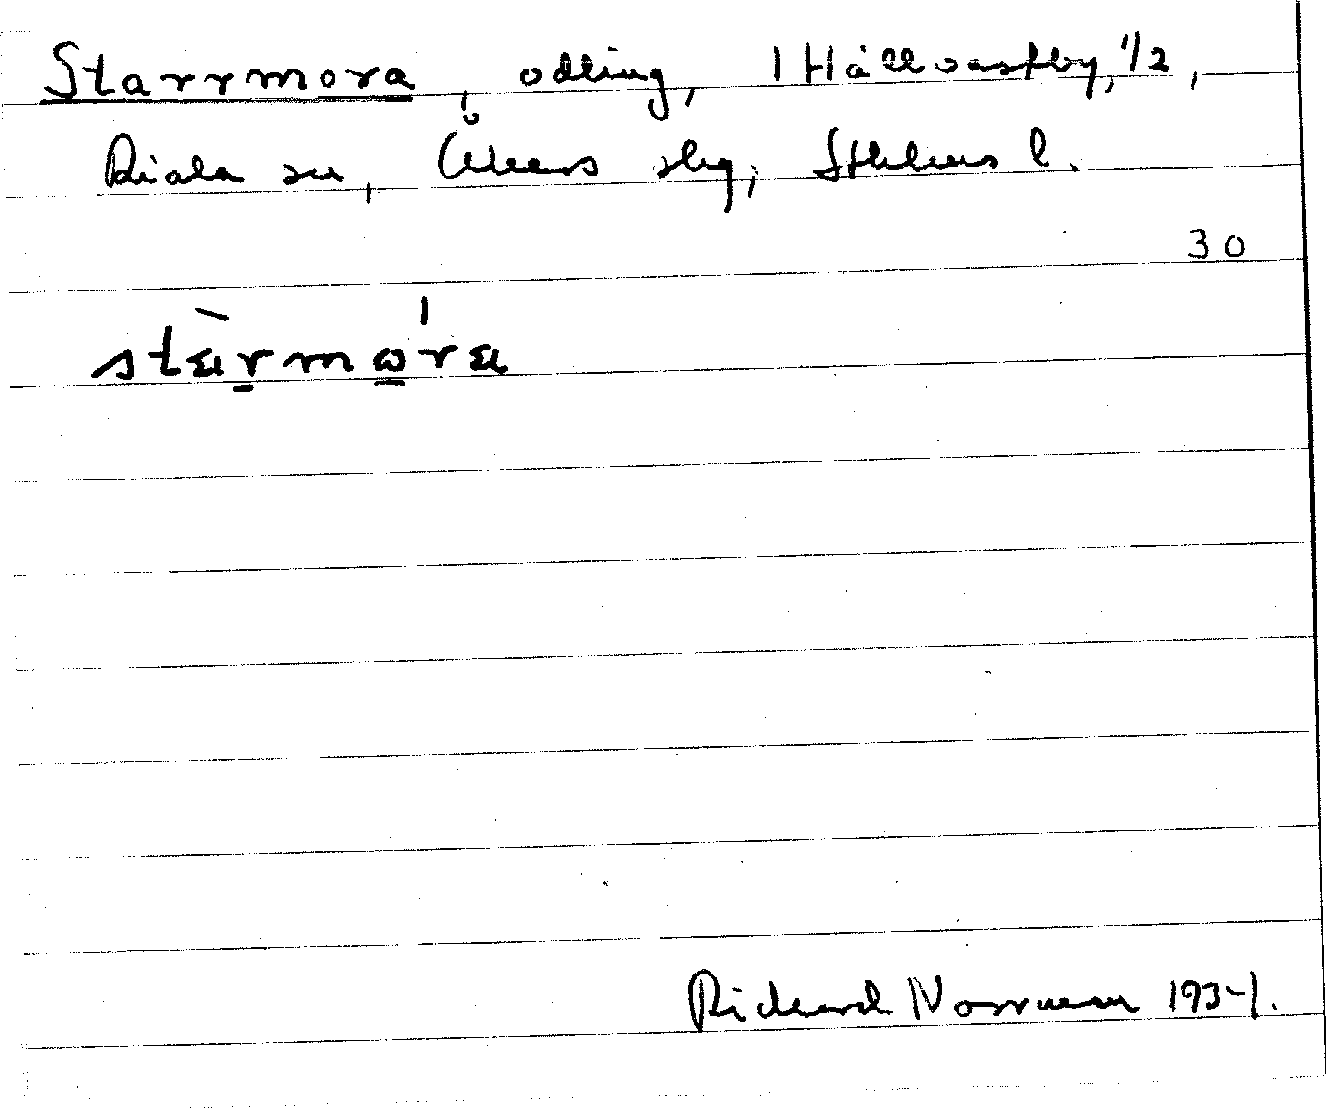 Starrmora, odling, 1 Hållvastby, 1/2,
Riala sn, Åkers skg, Sthlms l.
30
stàrmɷ́ra
Rickard Norrman 193